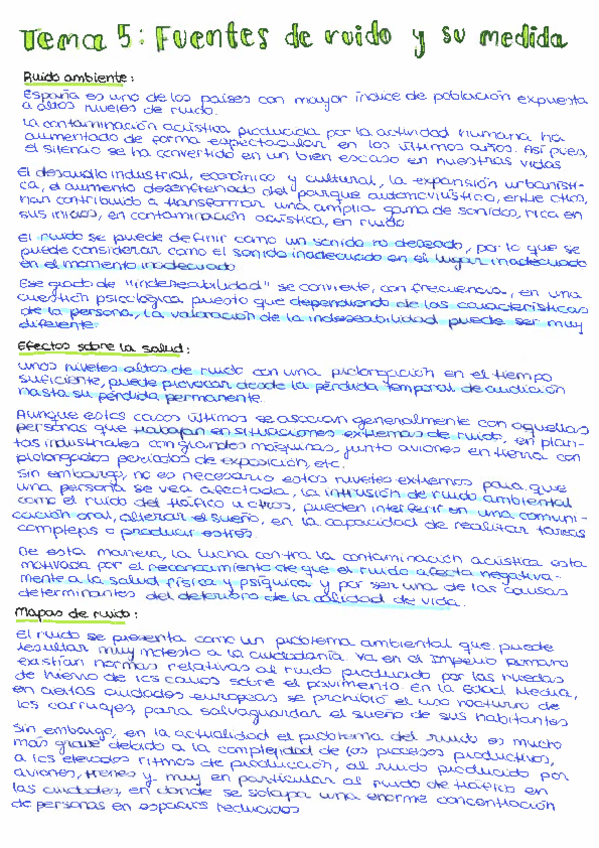 Tema 5: Fuentes de ruido y su medida
Ruido ambiente:
España es uno de los países con mayor índice de población expuesta
a altos niveles de ruido.
La contaminación acústica producida por la actividad humana ha
aumentado de forma espectacular en los últimos años. Así pues,
el silencio se ha convertido en un bien escaso en nuestras vidas
El desarrollo industrial, económico y cultural, la expansión urbanísti-
ca, el aumento desenfrenado del parque automovilístico, entre otros,
han contribuido a transformar una amplia gama de sonidos, rica en
sus inicios, en contaminación acústica, en ruido
El ruido se puede definir como un sonido no deseado, por lo que se
puede considerar como el sonido inadecuado en el lugar inadecuado
en el momento inadecuado
Ese grado de "indeseabilidad" se convierte, con frecuencia, en una
cuestión psicológica, puesto que dependiendo de las características
de la persona, la valoración de la indeseabilidad puede ser muy
diferente.
Efectos sobre la salud:
Unos niveles altos de ruido con una prolongación en el tiempo
suficiente, puede provocar desde la pérdida temporal de audición
hasta su pérdida permanente.
Aunque estos casos últimos se asocian generalmente con aquellas
personas que trabajan en situaciones extremas de ruido, en plan-
tas industriales con grandes máquinas, junto aviones en tierra con
prolongados periodos de exposición, etc.
Sin embargo, no es necesario estos niveles extremos para que
una persona se vea afectada, la intrusión de ruido ambiental
como el ruido del tráfico u otros, pueden interferir en una comuni-
cación oral, alterar el sueño, en la capacidad de realizar tareas
complejas o producir estrés.
De esta manera, la lucha contra la contaminación acústica esta
motivada por el reconocimiento de que el ruido afecta negativa-
mente a la salud física y psíquica y por ser una de las causas
determinantes del deterioro de la calidad de vida.
Mapas de ruido:
El ruido se presenta como un problema ambiental que puede
resultar muy molesto a la ciudadanía. Ya en el Imperio Romano
existían normas relativas al ruido producido por las ruedas
de hierro de los carros sobre el pavimento. En la Edad Media,
en ciertas ciudades europeas se prohibió el uso nocturno de
los carruajes, para salvaguardar el sueño de sus habitantes
Sin embargo, en la actualidad el problema del ruido es mucho
más grave debido a la complejidad de los procesos productivos,
a los elevados ritmos de producción, al ruido producido por
aviones, trenes y muy en particular al ruido de tráfico en
las ciudades, en donde se solapa una enorme concentración
de personas en espacios reducidos